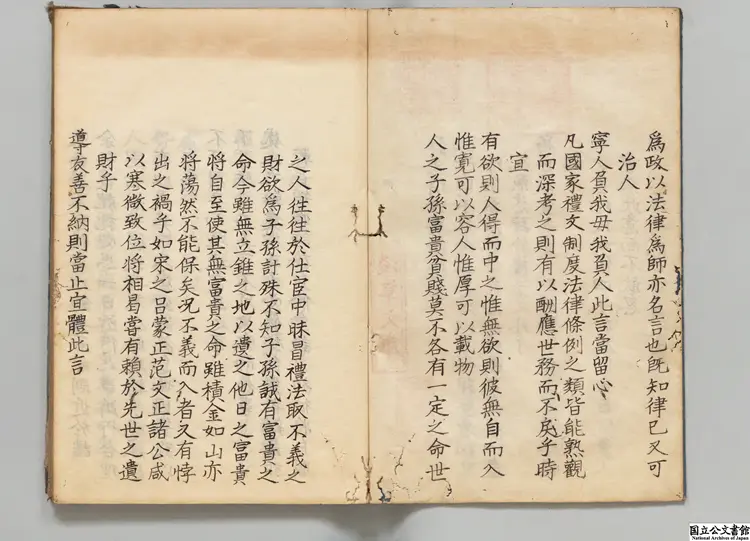 爲政以法律爲師亦名言也既知律己又可
治人
寧人負我毋我負人此言當留心
凡國家禮文制度法律條例之類皆能熟觀
而深考之則有以酬應世務而不戾乎時
宜
有欲則人得而中之惟無欲則彼無自而入
惟寛可以容人惟厚可以載物
人之子孫富貴貧賤莫不各有一定之命世
之人徃徃於仕宦中昧冒禮法取不義之
財欲爲子孫計殊不知子孫誠有富貴之
命今雖無立錐之地以遺之他日之富貴
將自至使其無富貴之命雖積金如山亦
將蕩然不能保矣況不義而入者又有悖
出之禍乎如宋之吕蒙正范文正諸公咸
以寒微致位將相曷嘗有賴於先世之遺
財乎
導友善不納則當止宜體此言
国立公文書館
National Archives of Japan